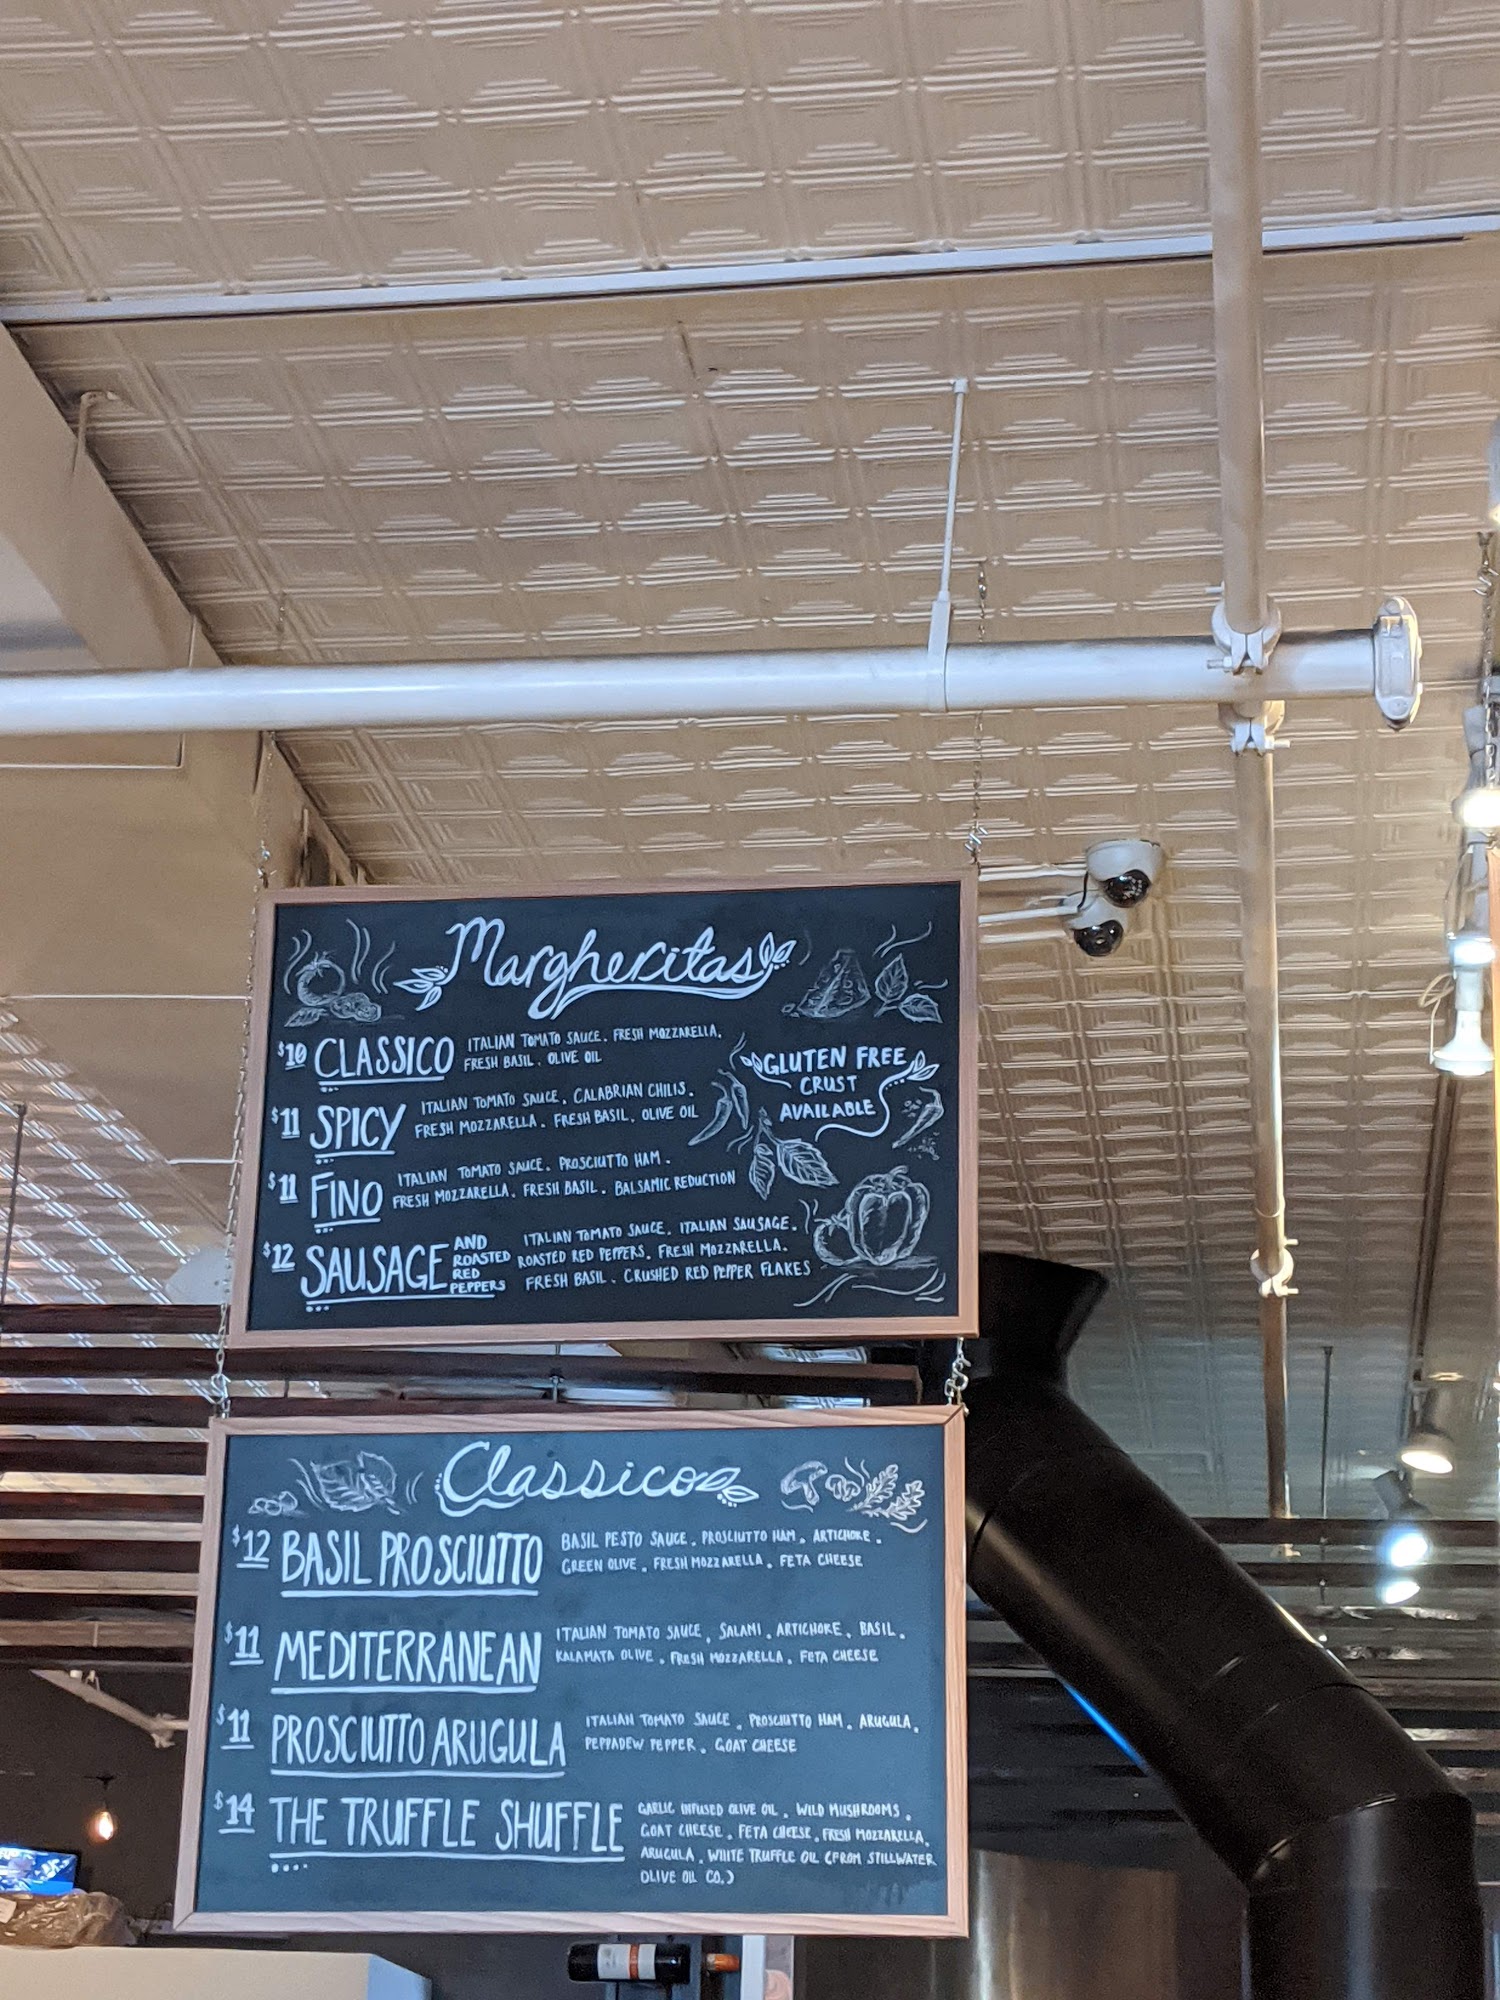 Margheritas
$10 CLASSICO
ITALIAN TOMATO SAUCE. FRESH MOZZARELLA.
FRESH BASIL. OLIVE OIL
$11 SPICY
ITALIAN TOMATO SAUCE. CALABRIAN CHILIS.
FRESH MOZZARELLA. FRESH BASIL. OLIVE OIL
$11 FINO
ITALIAN TOMATO SAUCE. PROSCIUTTO HAM.
FRESH MOZZARELLA. FRESH BASIL. BALSAMIC REDUCTION
$12 SAUSAGE
AND
ROASTED
RED
PEPPERS
ITALIAN TOMATO SAUCE. ITALIAN SAUSAGE.
ROASTED RED PEPPERS. FRESH MOZZARELLA.
FRESH BASIL. CRUSHED RED PEPPER FLAKES
GLUTEN FREE
CRUST
AVAILABLE
Classico
$12 BASIL PROSCIUTTO
BASIL PESTO SAUCE. PROSCIUTTO HAM. ARTICHOKE.
GREEN OLIVE. FRESH MOZZARELLA. FETA CHEESE
$11 MEDITERRANEAN
ITALIAN TOMATO SAUCE. SALAMI. ARTICHOKE. BASIL.
KALAMATA OLIVE. FRESH MOZZARELLA. FETA CHEESE
$11 PROSCIUTTO ARUGULA
ITALIAN TOMATO SAUCE. PROSCIUTTO HAM. ARUGULA.
PEPPADEW PEPPER. GOAT CHEESE
$14 THE TRUFFLE SHUFFLE
GARLIC INFUSED OLIVE OIL. WILD MUSHROOMS.
GOAT CHEESE. FETA CHEESE. FRESH MOZZARELLA.
ARUGULA. WHITE TRUFFLE OIL (FROM STILLWATER
OLIVE OIL CO.)